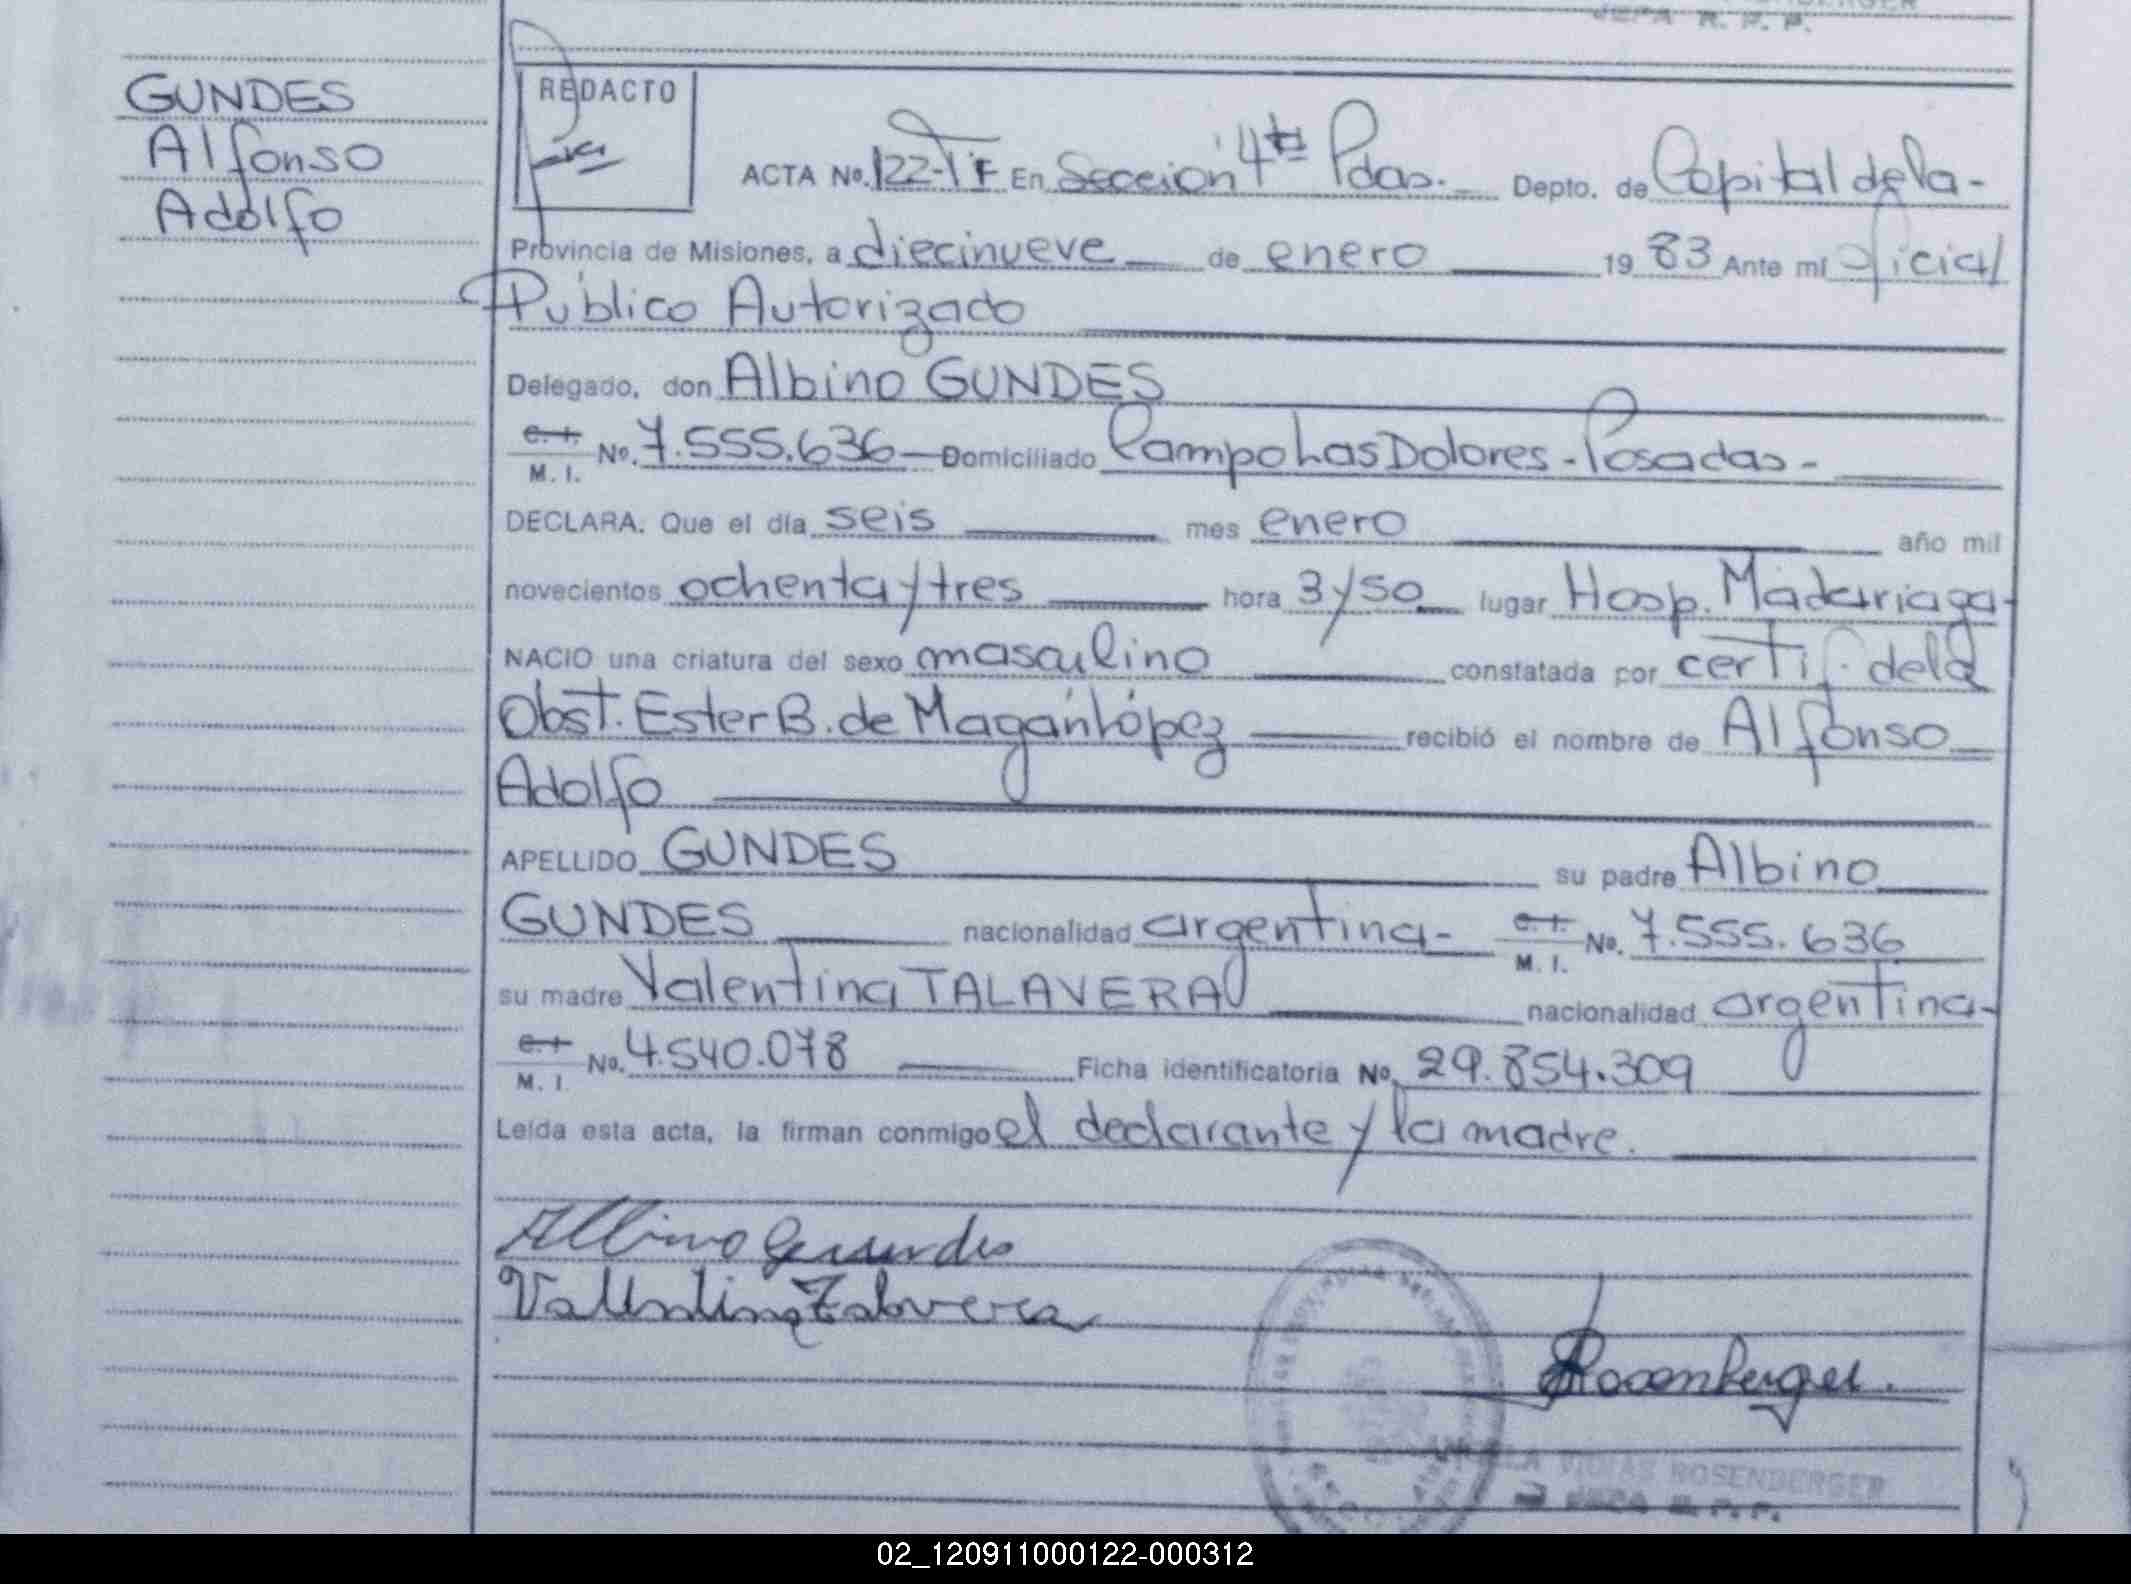 JEFA R. P. P.
GUNDES
Alfonso
Adolfo
REDACTO
ACTA No. 122-TF En Sección 4ta Pdas. Depto. de Capital de la-
Provincia de Misiones, a diecinueve de enero 19 83 Ante mí oficial
Público Autorizado
Delegado, don Albino GUNDES
C. I.
M. I. No. 7.555.636 Domiciliado Campo Las Dolores - Posadas -
DECLARA. Que el día seis mes enero año mil
novecientos ochenta y tres hora 3 y 50 lugar Hosp. Madariaga-
NACIO una criatura del sexo masculino constatada por certif. de la
Obst. Ester B. de Magán López recibió el nombre de Alfonso
Adolfo
APELLIDO GUNDES su padre Albino
GUNDES nacionalidad argentina- C. I.
M. I. No. 7.555.636
su madre Valentina TALAVERA nacionalidad argentina-
C. I.
M. I. No. 4.540.078 Ficha identificatoria No. 29.854.309
Leída esta acta, la firman conmigo el declarante y la madre.
Albino Gundes
Valentina Talavera
Rosenberger.
ROSENBERGER
JEFA R. P. P.
02_120911000122-000312